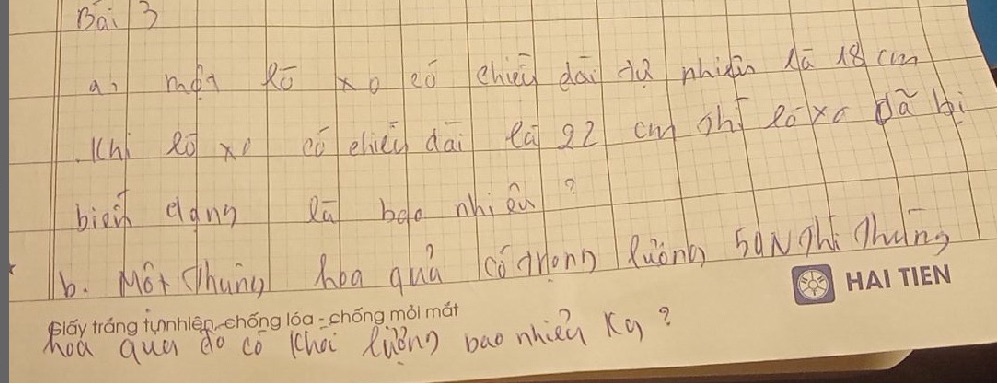 Bài 3
a, một lò xo có chiều dài tự nhiên là 18 cm
Khi lò xo có chiều dài là 22 cm thì lò xo đã bị
biến dạng là bao nhiêu ?
b. Một Thùng hoa quả có trọng lượng 50N thì Thùng
HAI TIEN
Giấy trắng tự nhiên - chống lóa - chống mỏi mắt
hoa quả đó có khối lượng bao nhiêu Kg ?